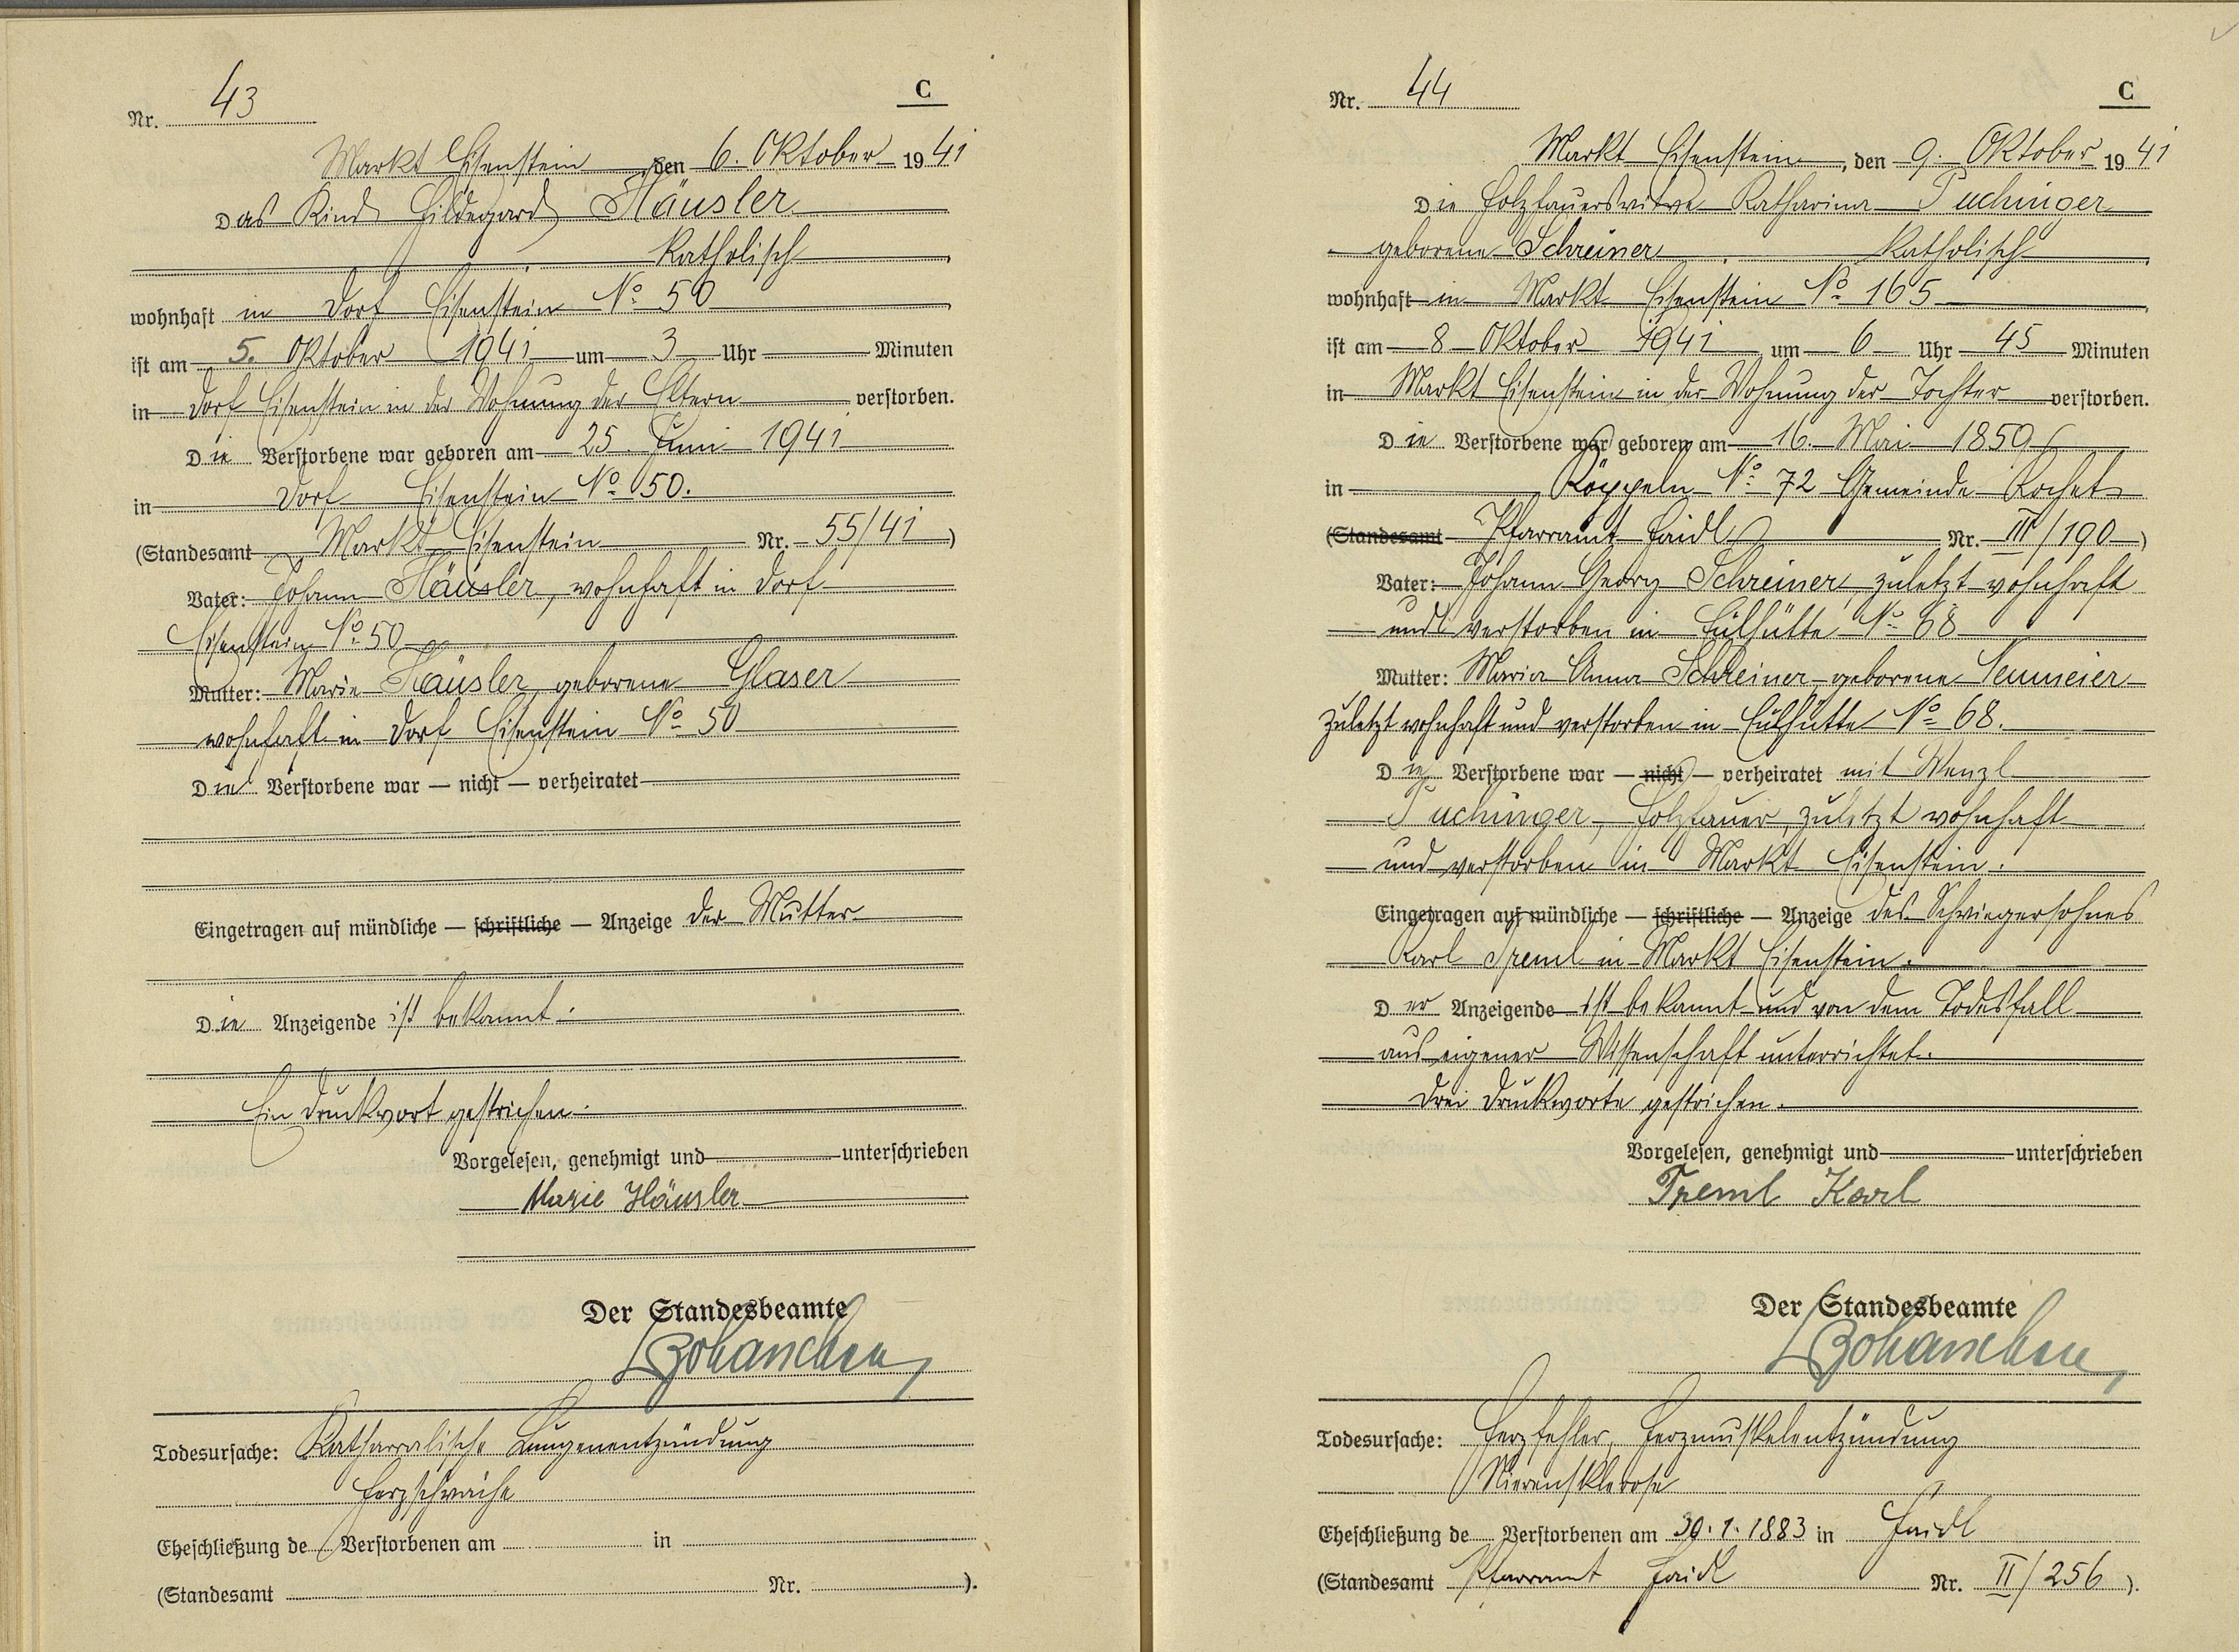 Nr. 43
C
Markt Eisenstein, den 6. Oktober 1941
Das Kind Hildegard Häusler
Katholisch
wohnhaft in Dorf Eisenstein No 50
ist am 5. Oktober 1941 um 3 Uhr Minuten
in Dorf Eisenstein in der Wohnung der Eltern verstorben.
Die Verstorbene war geboren am 25. Juni 1941
in Dorf Eisenstein No 50.
(Standesamt Markt Eisenstein Nr. 55/41)
Vater: Johann Häusler, wohnhaft in Dorf
Eisenstein No 50
Mutter: Marie Häusler, geborene Glaser
wohnhaft in Dorf Eisenstein No 50
Die Verstorbene war — nicht — verheiratet
Eingetragen auf mündliche — schriftliche — Anzeige der Mutter
Die Anzeigende ist bekannt.
Ein Druckwort gestrichen.
Vorgelesen, genehmigt und unterschrieben
Marie Häusler
Der Standesbeamte
Todesursache: Katharralische Lungenentzündung
Herzschwäche
Eheschließung de Verstorbenen am in
(Standesamt Nr. ).
Nr. 44
C
Markt Eisenstein, den 9. Oktober 1941
Die Holzhauerswitwe Katharina Puchinger
geborene Schreiner. Katholisch
wohnhaft in Markt Eisenstein No 165
ist am 8 Oktober 1941 um 6 Uhr 45 Minuten
in Markt Eisenstein in der Wohnung der Tochter verstorben.
Die Verstorbene war geboren am 16. Mai 1859
in Köppeln No 72 Gemeinde Kochet
(Standesamt Pfarramt Haidl Nr. III/190)
Vater: Johann Georg Schreiner, zuletzt wohnhaft
und verstorben in No 68
Mutter: Maria Anna Schreiner, geborene Neumeier
zuletzt wohnhaft und verstorben in No 68.
Die Verstorbene war — nicht — verheiratet mit Wenzl
Puchinger, Holzhauer, zuletzt wohnhaft
und verstorben in Markt Eisenstein.
Eingetragen auf mündliche — schriftliche — Anzeige des Schwiegersohnes
Karl Treml in Markt Eisenstein.
Der Anzeigende ist bekannt und von dem Todesfall
aus eigener Wissenschaft unterrichtet.
Drei Druckworte gestrichen.
Vorgelesen, genehmigt und unterschrieben
Treml Karl
Der Standesbeamte
Todesursache: Herzfehler, Herzmuskelentzündung
Nierensklerose
Eheschließung de Verstorbenen am 30.1.1883 in Haidl
(Standesamt Pfarramt Haidl Nr. II/256).